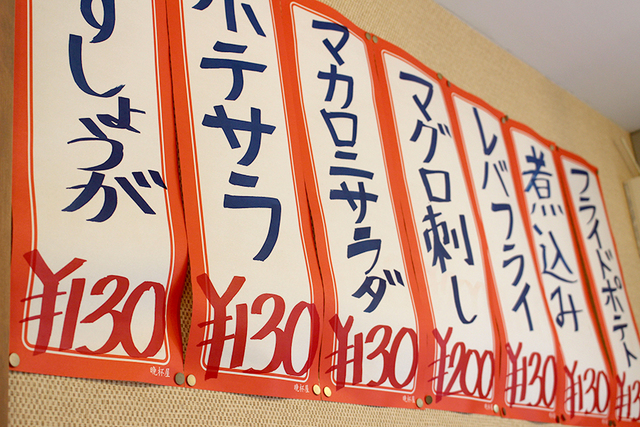 すしょうが
¥130
晩杯屋
ポテサラ
¥130
晩杯屋
マカロニサラダ
¥130
晩杯屋
マグロ刺し
¥200
レバフライ
¥130
煮込み
¥130
フライドポテト
¥130